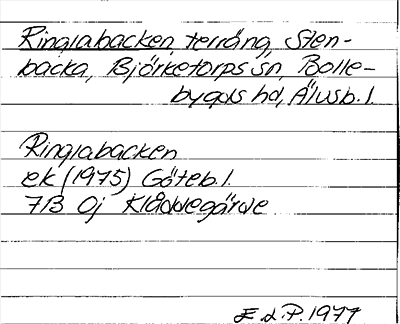 Ringlabacken, terräng, Sten-
backa, Björketorps sn, Bolle-
bygds hd, Älvsb. l.
Ringlabacken
ek (1975) Göteb. l.
7B 0j Klåddegärde
E.d.P. 1977